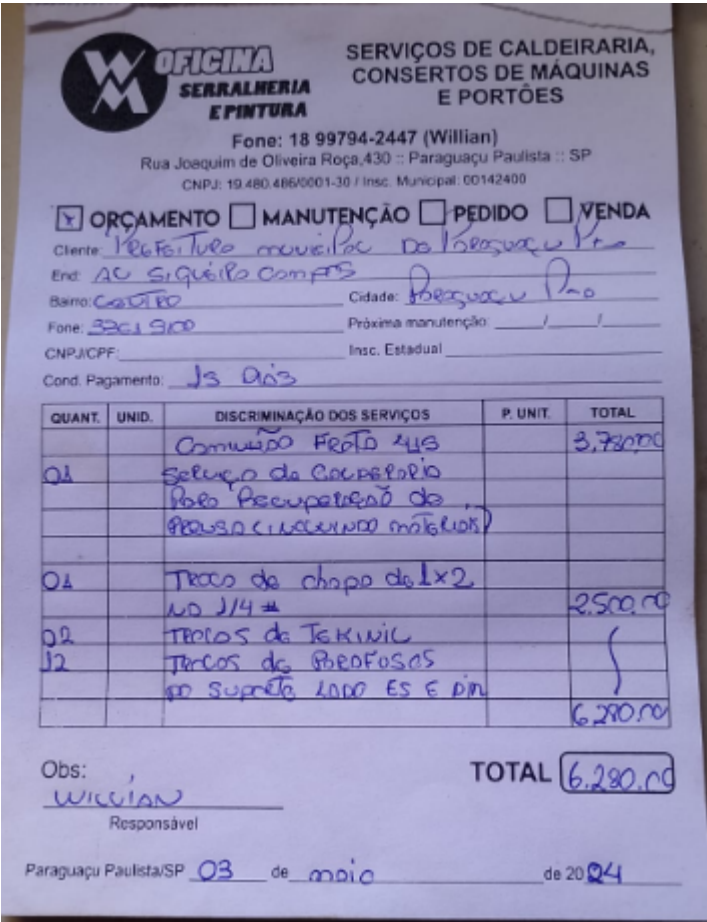 WM
OFICINA
SERRALHERIA
E PINTURA
SERVIÇOS DE CALDEIRARIA,
CONSERTOS DE MÁQUINAS
E PORTÕES
Fone: 18 99794-2447 (Willian)
Rua Joaquim de Oliveira Roça,430 :: Paraguaçu Paulista :: SP
CNPJ: 19.480.486/0001-30 / Insc. Municipal: 00142400
x ORÇAMENTO MANUTENÇÃO PEDIDO VENDA
Cliente: Prefeitura municipal De Paraguaçu Pta
End: AC Siqueira Campos
Bairro: Centro Cidade: Paraguaçu
Fone: 3361 9100 Próxima manutenção: / /
CNPJ/CPF: Insc. Estadual
Cond. Pagamento: 15 Dias
QUANT. UNID. DISCRIMINAÇÃO DOS SERVIÇOS P. UNIT. TOTAL
Frota 413 3,780,00
01 Serviço de
Para Recuperação de
(incluindo materiais)
01 Troca de chapa de 1x2
NO 1/4 # 2.500,00
02 Trocas de Tekinil
12 Trocas de Parafusos
do Suporte LADO ES E Dir
6.280,00
Obs: TOTAL 6.280,00
Willian
Responsável
Paraguaçu Paulista/SP 03 de maio de 2024